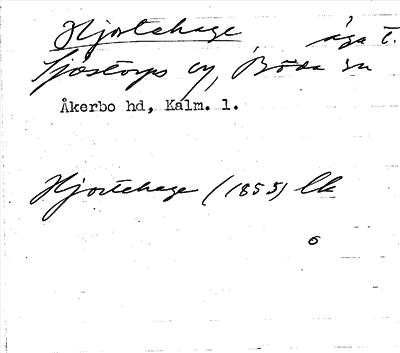 Hjortehage äga t.
Sjöstorps by, Böda sn
Åkerbo hd, Kalm. l.
Hjortehage (1855) lk
o